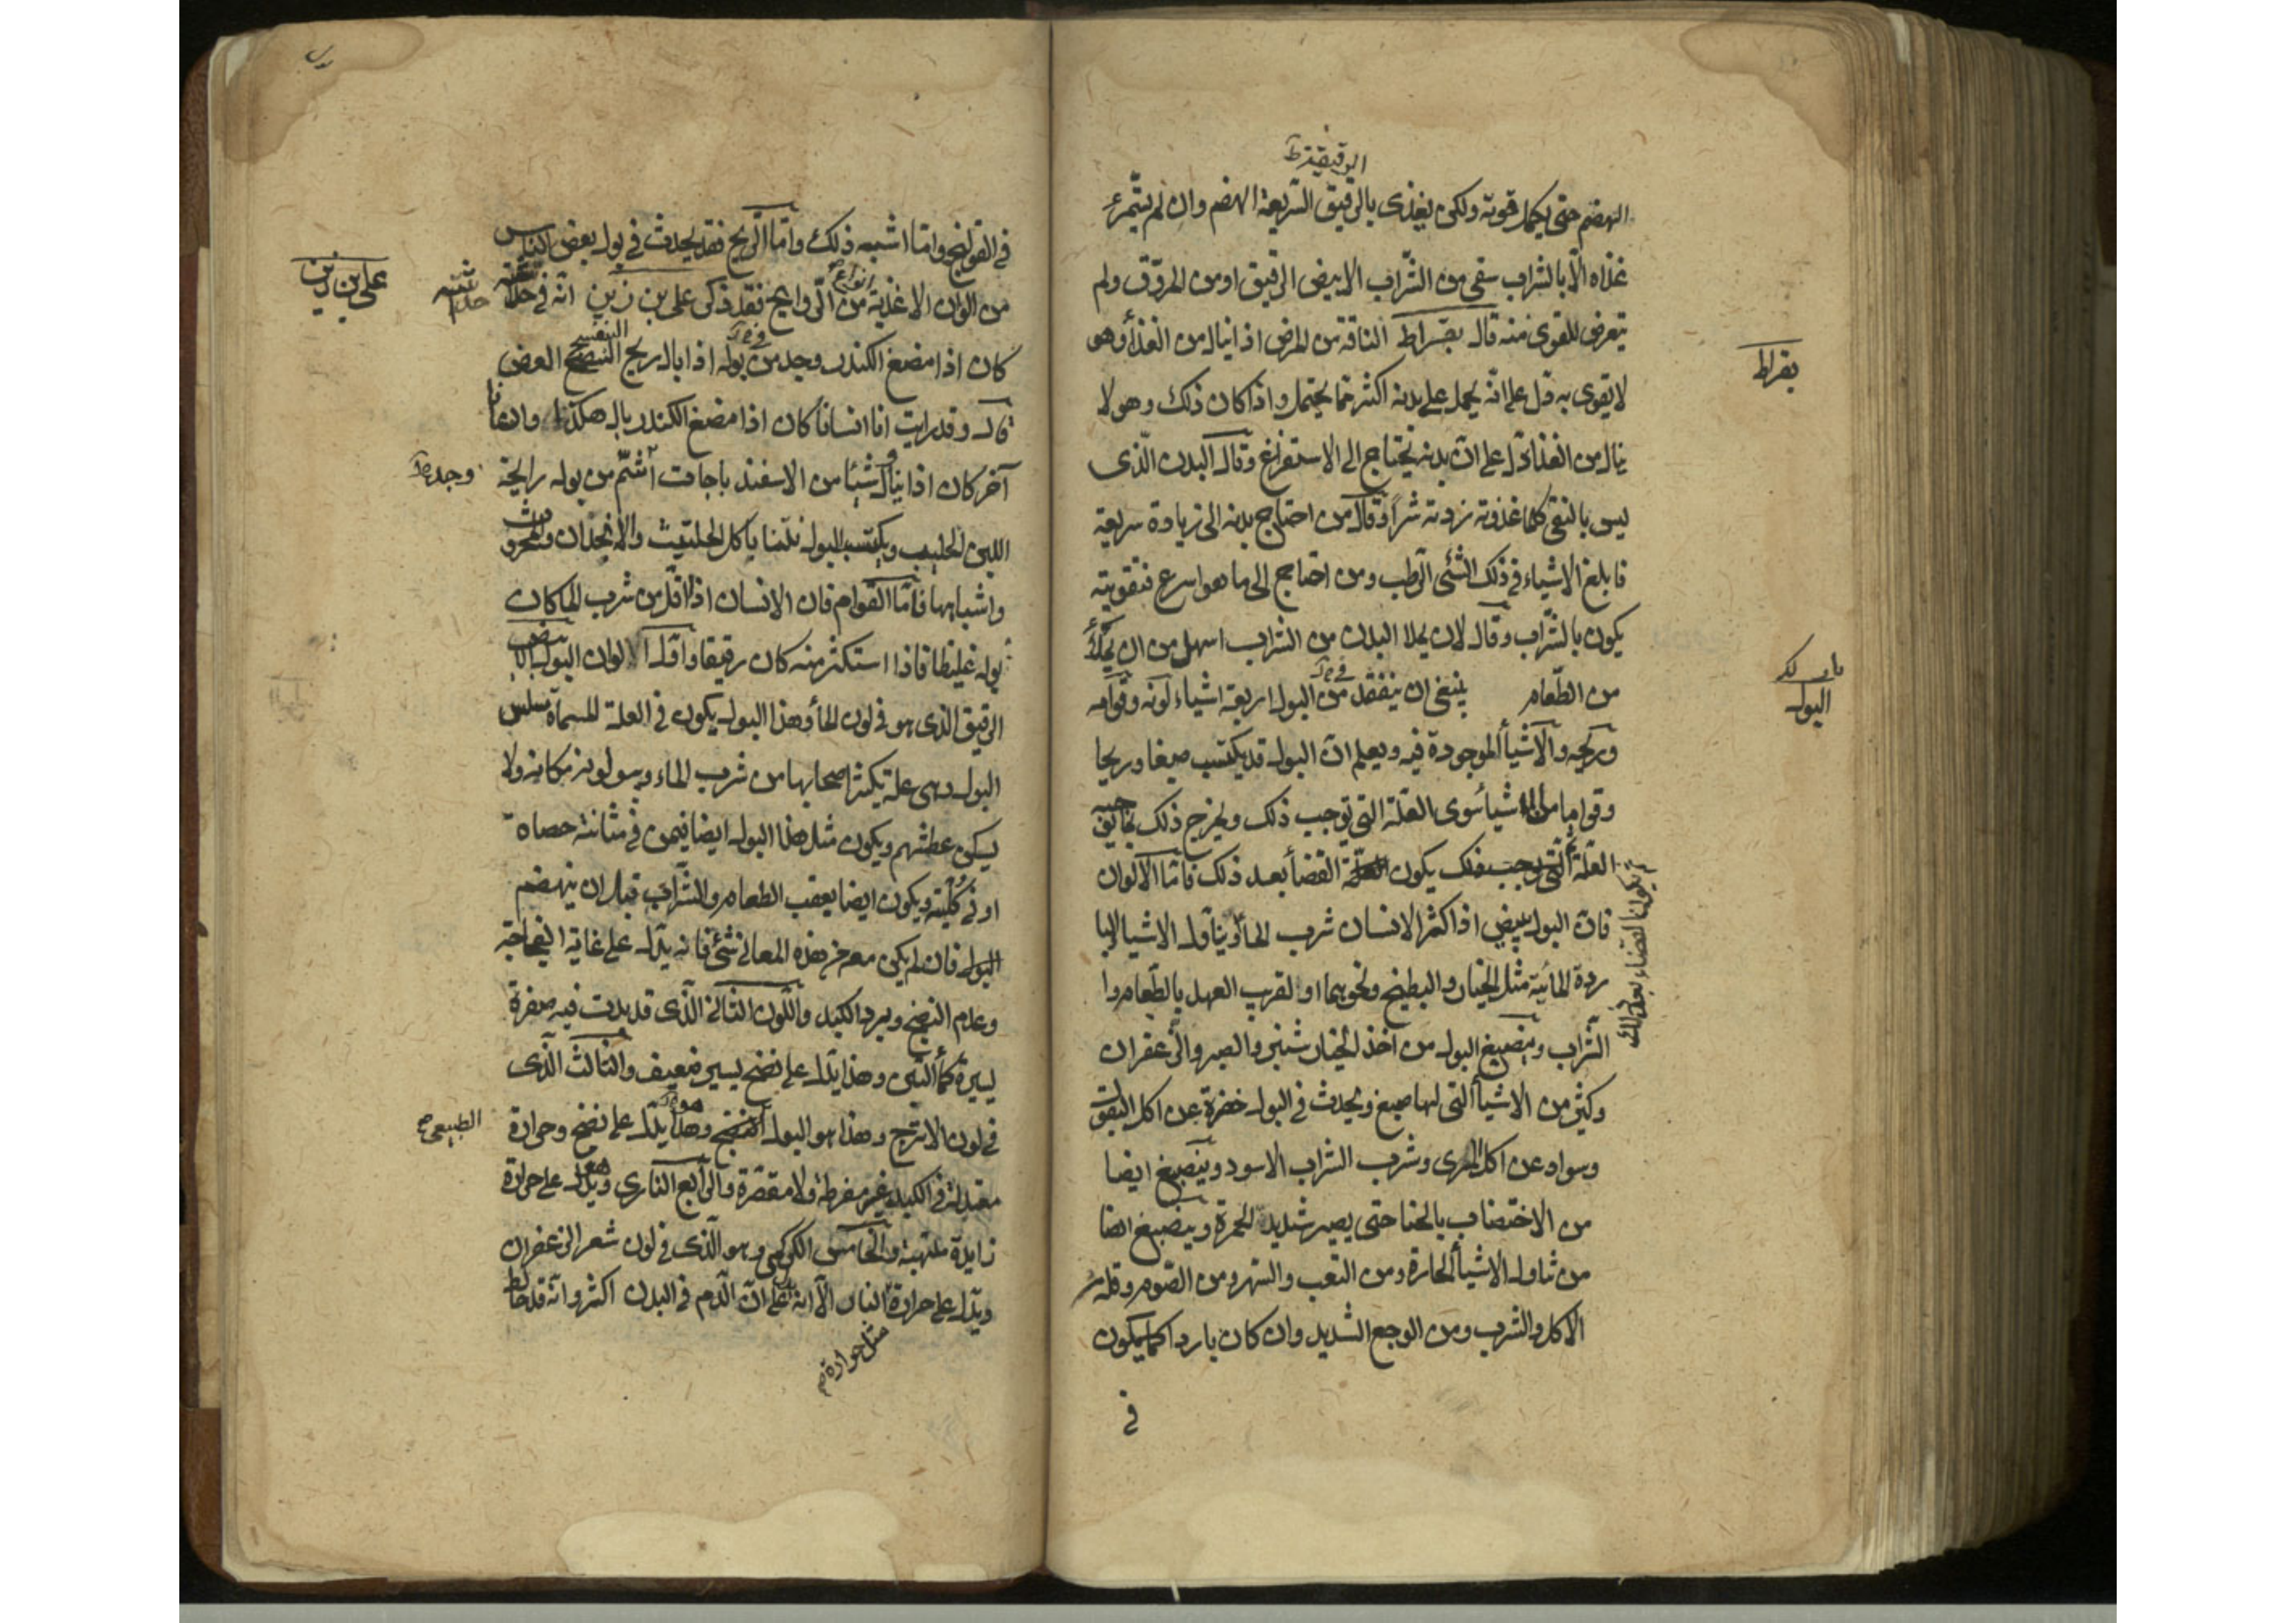 الرقيقة ط
الهضم حتى يكمل قوته ولكن يغذى بالرقيق السريعة الهضم وان لم يتمرئ
غذاه الا بالشراب سقى من الشراب الابيض الرقيق او من المروق ولم
يتعرض للقوى منه قال بقراط الناقة من المرض اذا ينال من الغذأ وهو
بقراط
لا يقوى به دل على انه يحمل على بدنه اكثر مما يحتمل واذا كان ذلك وهو لا
ينال من الغذا دل على ان بدنه يحتاج الى الاستفراغ وقال البدن الذى
ليس بالنقى كلما غذوته زدته شرا وقال من احتاج بدنه الى زيادة سريعة
فابلغ الاشياء فى ذلك الشئى الرطب ومن احتاج الى ما هو اسرع فتقويته
يكون بالشراب وقال لان يملا البدن من الشراب اسهل من ان يملأ
من الطعام ينبغى ان يتفقد من البول اربعة اشياء لونه وقوامه
فى
البول
وريحه والاشيأ الموجودة فيه ويعلم ان البول قد يكتسب صبغا وريحا
وقواما من الاشيأ سوى العلة التى توجب ذلك ويخرج ذلك
العلة التى يكون القضأ بعد ذلك فاما الالوان
يكون القضاء بعد ذلك
فان البول يبيض اذا اكثر الانسان شرب المأ ويتأول الاشيا البا
ردة المائية مثل الخيار والبطيخ ونحوهما او لقرب العهد بالطعام وا
الشراب وينصبغ البول من اخذ الخيار شنبر والصبر والزعفران
وكثير من الاشيأ التى لها صبغ ويحدث فى البول خضرة عن اكل البقول
وسواد عن اكل المرى وشرب الشراب الاسود وينصبغ ايضا
من الاختضاب بالحنا حتى يصير شديد الحمرة وينصبغ ايضا
من تناول الاشيأ الحارة ومن التعب والسهر ومن الصوم وقلة
الاكل والشرب ومن الوجع الشديد وان كان باردا كما يكون
فى
فى القولنج واما اشبه ذلك واما الريح فقد يحدث فى بول بعض الناس
من الوان الاغذية من الروايح فقد ذكر على بن زين انه فى حداثته
انواع
على بن زين
حداثته
كان اذا مضغ الكندر وجد من بوله اذا بال ريح النضيج العض
فى
البنفسج
قال وقد رايت انا انسانا كان اذا مضغ الكندر بال هكذا وانسانا
آخر كان اذا ينال شيئا من الاسفيد باجات اشتم من بوله رايحة
وجد
اللبن الحليب ويكتسب البول نتنا ياكل الحلتيث والانجدان والمحروث
واشباهها فاما القوام فان الانسان اذا اقل من شرب الما كان
بوله غليظا فاذا استكثر منه كان رقيقا واول الالوان البول الابيض
الرقيق الذى هو فى لون المأ وهذا البول يكون فى العلة المسماة سلس
البول وهى علة يكثر اصحابها من شرب الماء ويبولونه مكانه ولا
يسكن عطشهم ويكون مثل هذا البول ايضا فيمن فى مثانته حصاة
او فى كليته ويكون ايضا بعقب الطعام والشراب قبل ان ينهضم
البول فان لم يكن معه من هذه المعانى شئ فانه يدل على غاية الفجاجة
وعدم النضج وبرد الكبد واللون الثانى الذى قد بدت فيه صفرة
يسيرة كمأ التبن وهذا يدل على نضج يسير ضعيف والثالث الذى
فى لون الاترج وهذا هو البول النضيج وهذا يدل على نضج وحرارة
هو
الطبيعى
معتدلة فى الكبد غير مفرطة ولا مقصرة والرابع النارى ويدل على حرارة
زايدة ملتهبة والخامس الكركمى وهو الذى فى لون شعر الزعفران
ويدل على حرارة النار الا انه يدل على ان الدم فى البدن اكثر وانه قد خالط
مثل حرارة